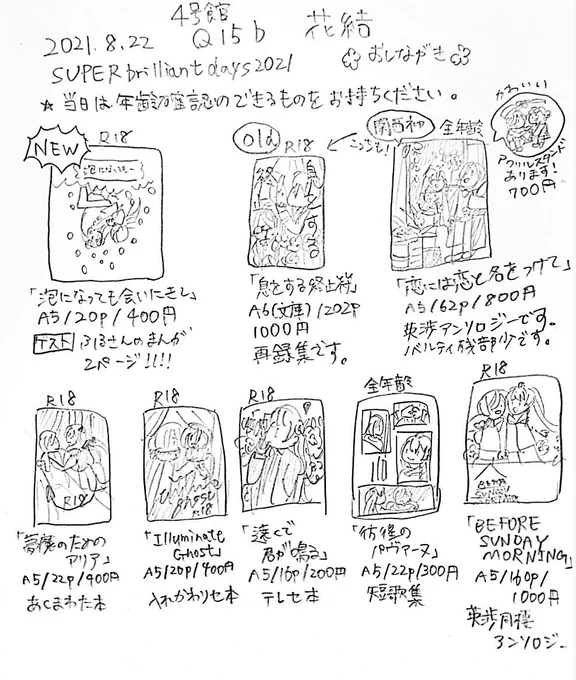 4号館
2021.8.22 Q15b 花結
SUPER brilliant days 2021 おしながき
☆ 当日は年齢確認のできるものをお持ちください。
NEW
R18
泡になっても
「泡になっても会いにきて」
A5/20p/400円
ゲスト ふるさんのまんが
2ページ!!!!
Old R18
息をする
終止符
「息をする終止符」
A6(文庫)/202p
1000円
再録集です。
関西初 全年齢
こっちも!
「恋には恋と名をつけて」
A5/62p/800円
英渉アンソロジーです。
ノベルティ残部少です。
かわいい
アクリルスタンド
あります!
700円
R18
R18
「夢魔のための
アリア」
A5/22p/400円
あくまわた本
R18
「Illuminate
Ghost」
A5/20p/400円
入れかわりセ本
R18
「遠くで
君が鳴る」
A5/16p/200円
テレセ本
全年齢
「彷徨の
パヴァーヌ」
A5/22p/300円
短歌集
R18
BEFORE
SUNDAY
MORNING
「BEFORE
SUNDAY
MORNING」
A5/160p/
1000円
英渉同棲
アンソロジー